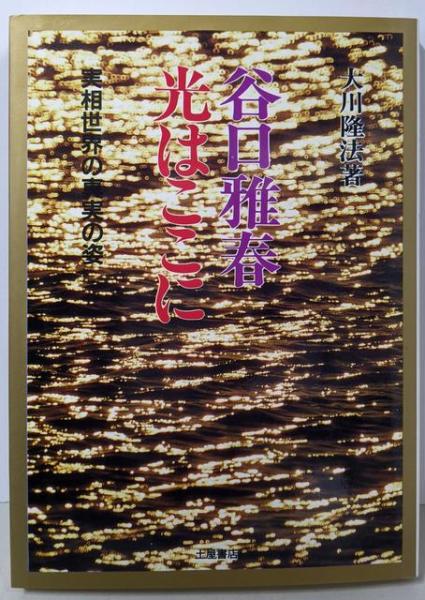 大川隆法著
谷口雅春
光はここに
実相世界の真実の姿
土屋書店